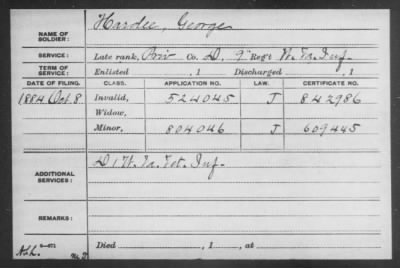 Hardee, George
NAME OF SOLDIER:
SERVICE: Late rank, Priv Co. D, 9" Reg't W. Va. Inf.
TERM OF SERVICE: Enlisted , 1 Discharged , 1
DATE OF FILING. CLASS. APPLICATION NO. LAW. CERTIFICATE NO.
1884 Oct. 8 Invalid, 524045 J 842986
Widow,
Minor, 804046 J 609445
D 1 W. Va. Vet. Inf.
ADDITIONAL SERVICES:
REMARKS:
Died , 1 , at